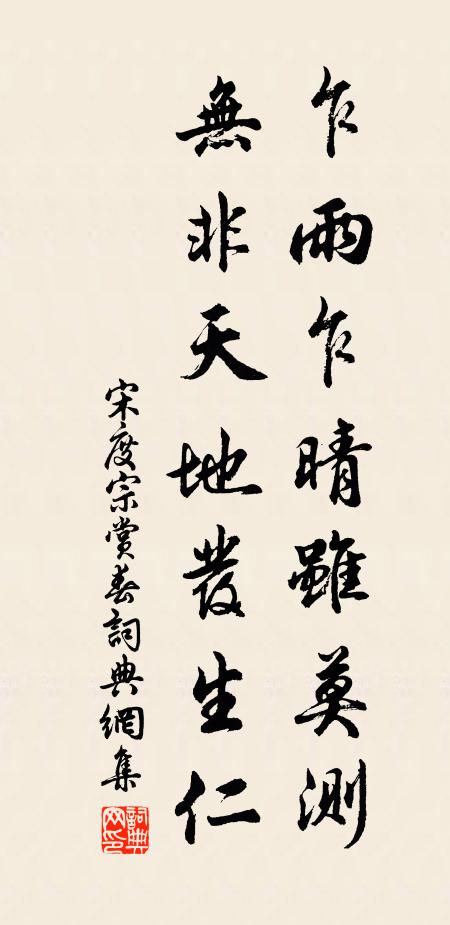 乍雨乍晴雖莫測
無非天地發生仁
宋度宗賞春詞典網集
詞典
网印